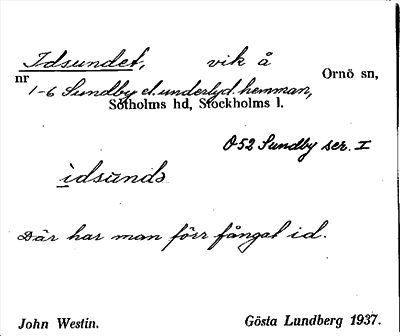 Idsundet, vik å
nr Ornö sn,
1-6 Sundby el. underlyd. hemman,
Sotholms hd, Stockholms l.
052 Sundby ser. I
idsundə
Där har man förr fångat id.
John Westin. Gösta Lundberg 1937.